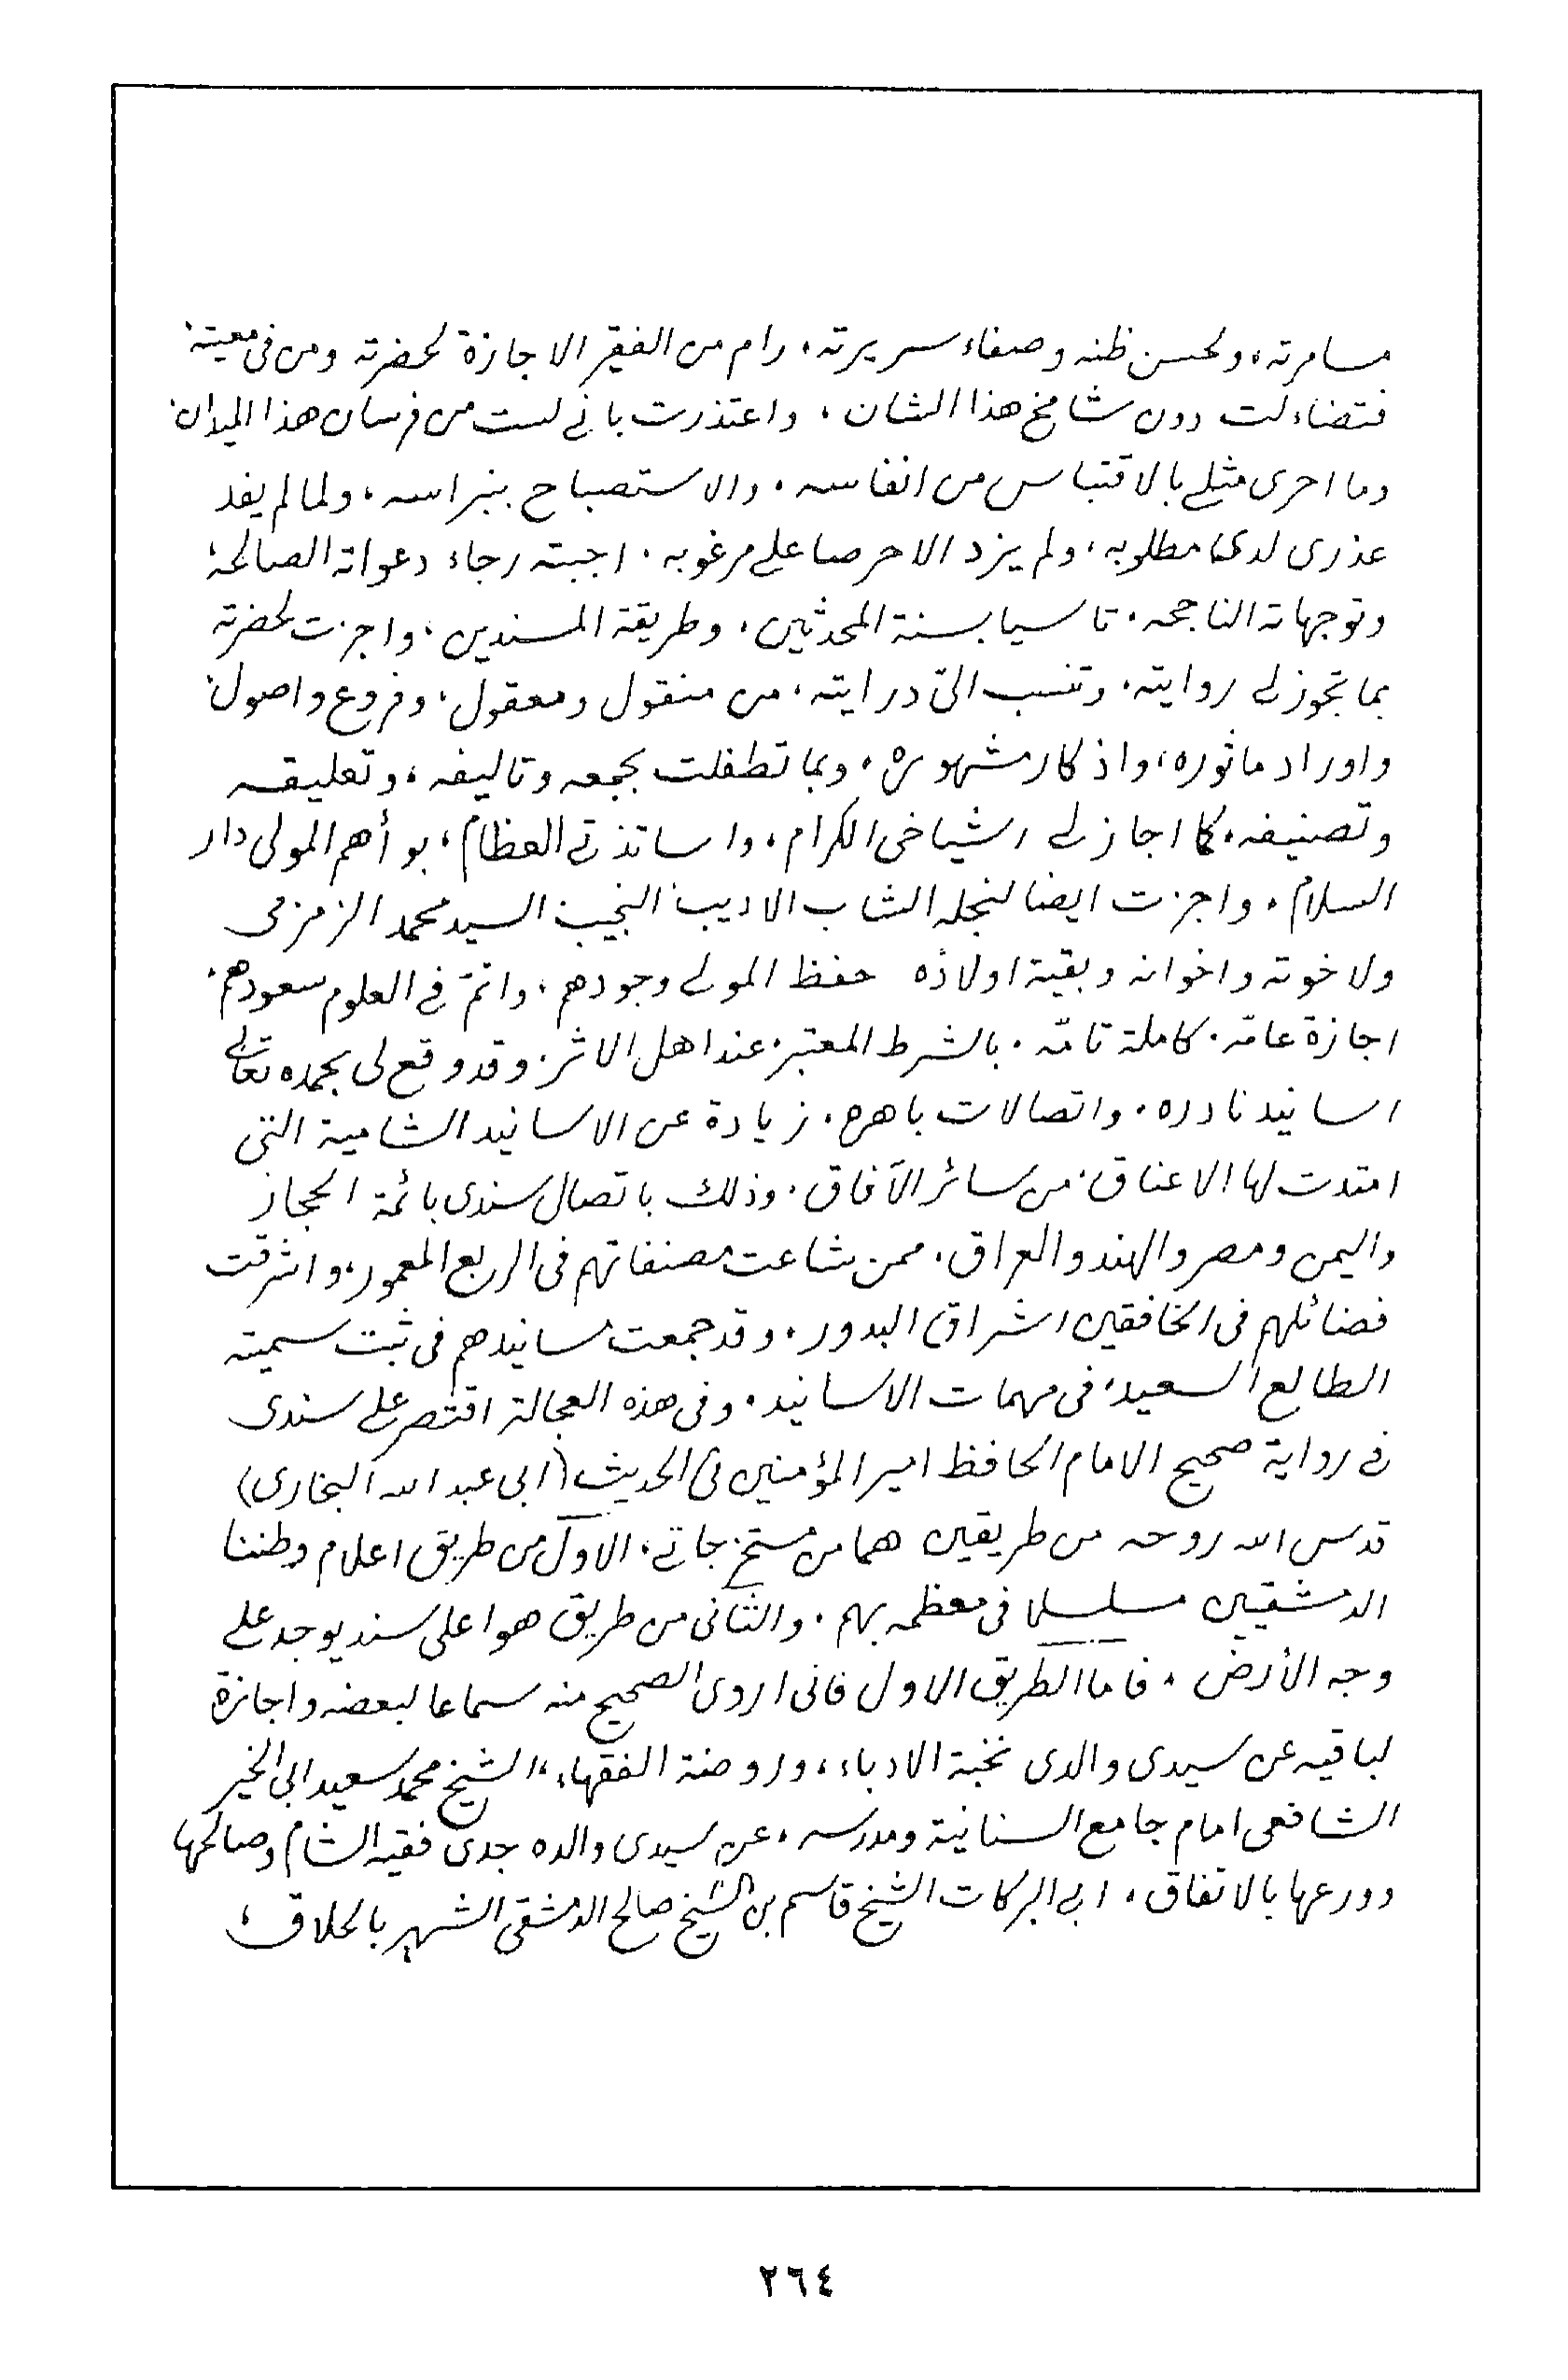 مسامرته، ولحسن ظنه وصفاء سريرته، رام من الفقير الاجازة لحضرته ومن فى معيته،
فتضاءلت دون شامخ هذا الشان، واعتذرت بانى لست من فرسان هذا الميدان،
وما احرى مثلى بالاقتباس من انفاسه، والاستصباح بنبراسه، ولما لم يفد
عذرى لدى مطلوبه، ولم يزد الا حرصا على مرغوبه، اجبته رجاء دعواته الصالحة،
وتوجهاته الناجحه، تاسيا بسنة المحدثين، وطريقة المسندين، واجزت لحضرته
بما تجوز لى روايته، وتنسب الىّ درايته، من منقول ومعقول، وفروع واصول،
واوراد ماثوره، واذكار مشهوره، وبما تطفلت بجمعه وتاليفه، وتعليقه
وتصنيفه، كما اجاز لى اشياخى الكرام، واساتذتى العظام، بوأهم المولى دار
السلام، واجزت ايضا لنجله الشاب الاديب، النجيب، السيد محمد الزمزمى
ولاخوته واخوانه وبقية اولاده حفظ المولى وجودهم، واتمّ فى العلوم سعودهم،
اجازة عامّه، كاملة تامّه، بالشرط المعتبر، عند اهل الاثر، وقد وقع لى بحمده تعالى
اسانيد نادره، واتصالات باهره، زيادة عن الاسانيد الشامية التى
امتدت لها الاعناق، من سائر الآفاق، وذلك باتصال سندى بائمة الحجاز
واليمن ومصر والهند والعراق، ممن شاعت مصنفاتهم فى الربع المعمور، واشرقت
فضائلهم فى الخافقين اشراق البدور، وقد جمعت مسانيدهم فى ثبت سميته
الطالع السعيد، فى مهمات الاسانيد، وفى هذه العجالة اقتصر على سندى
فى رواية صحيح الامام الحافظ امير المؤمنين فى الحديث (ابى عبد الله البخارى)
قدس الله روحه من طريقين هما من مستخرجاتى، الاول من طريق اعلام وطننا
الدمشقيين مسلسلا فى معظمه بهم، والثانى من طريق هو اعلى سند يوجد على
وجه الأرض، فاما الطريق الاول فانى اروى الصحيح منه سماعا لبعضه واجازة
لباقيه عن سيدى والدى نخبة الادباء، وروضة الفقهاء، الشيخ محمد سعيد ابى الخير
الشافعى امام جامع السنانية ومدرسه، عن سيدى والده جدى فقيه الشام وصالحها
وورعها بالاتفاق، ابى البركات الشيخ قاسم بن الشيخ صالح الدمشقى الشهير بالحلاق،
٢٦٤